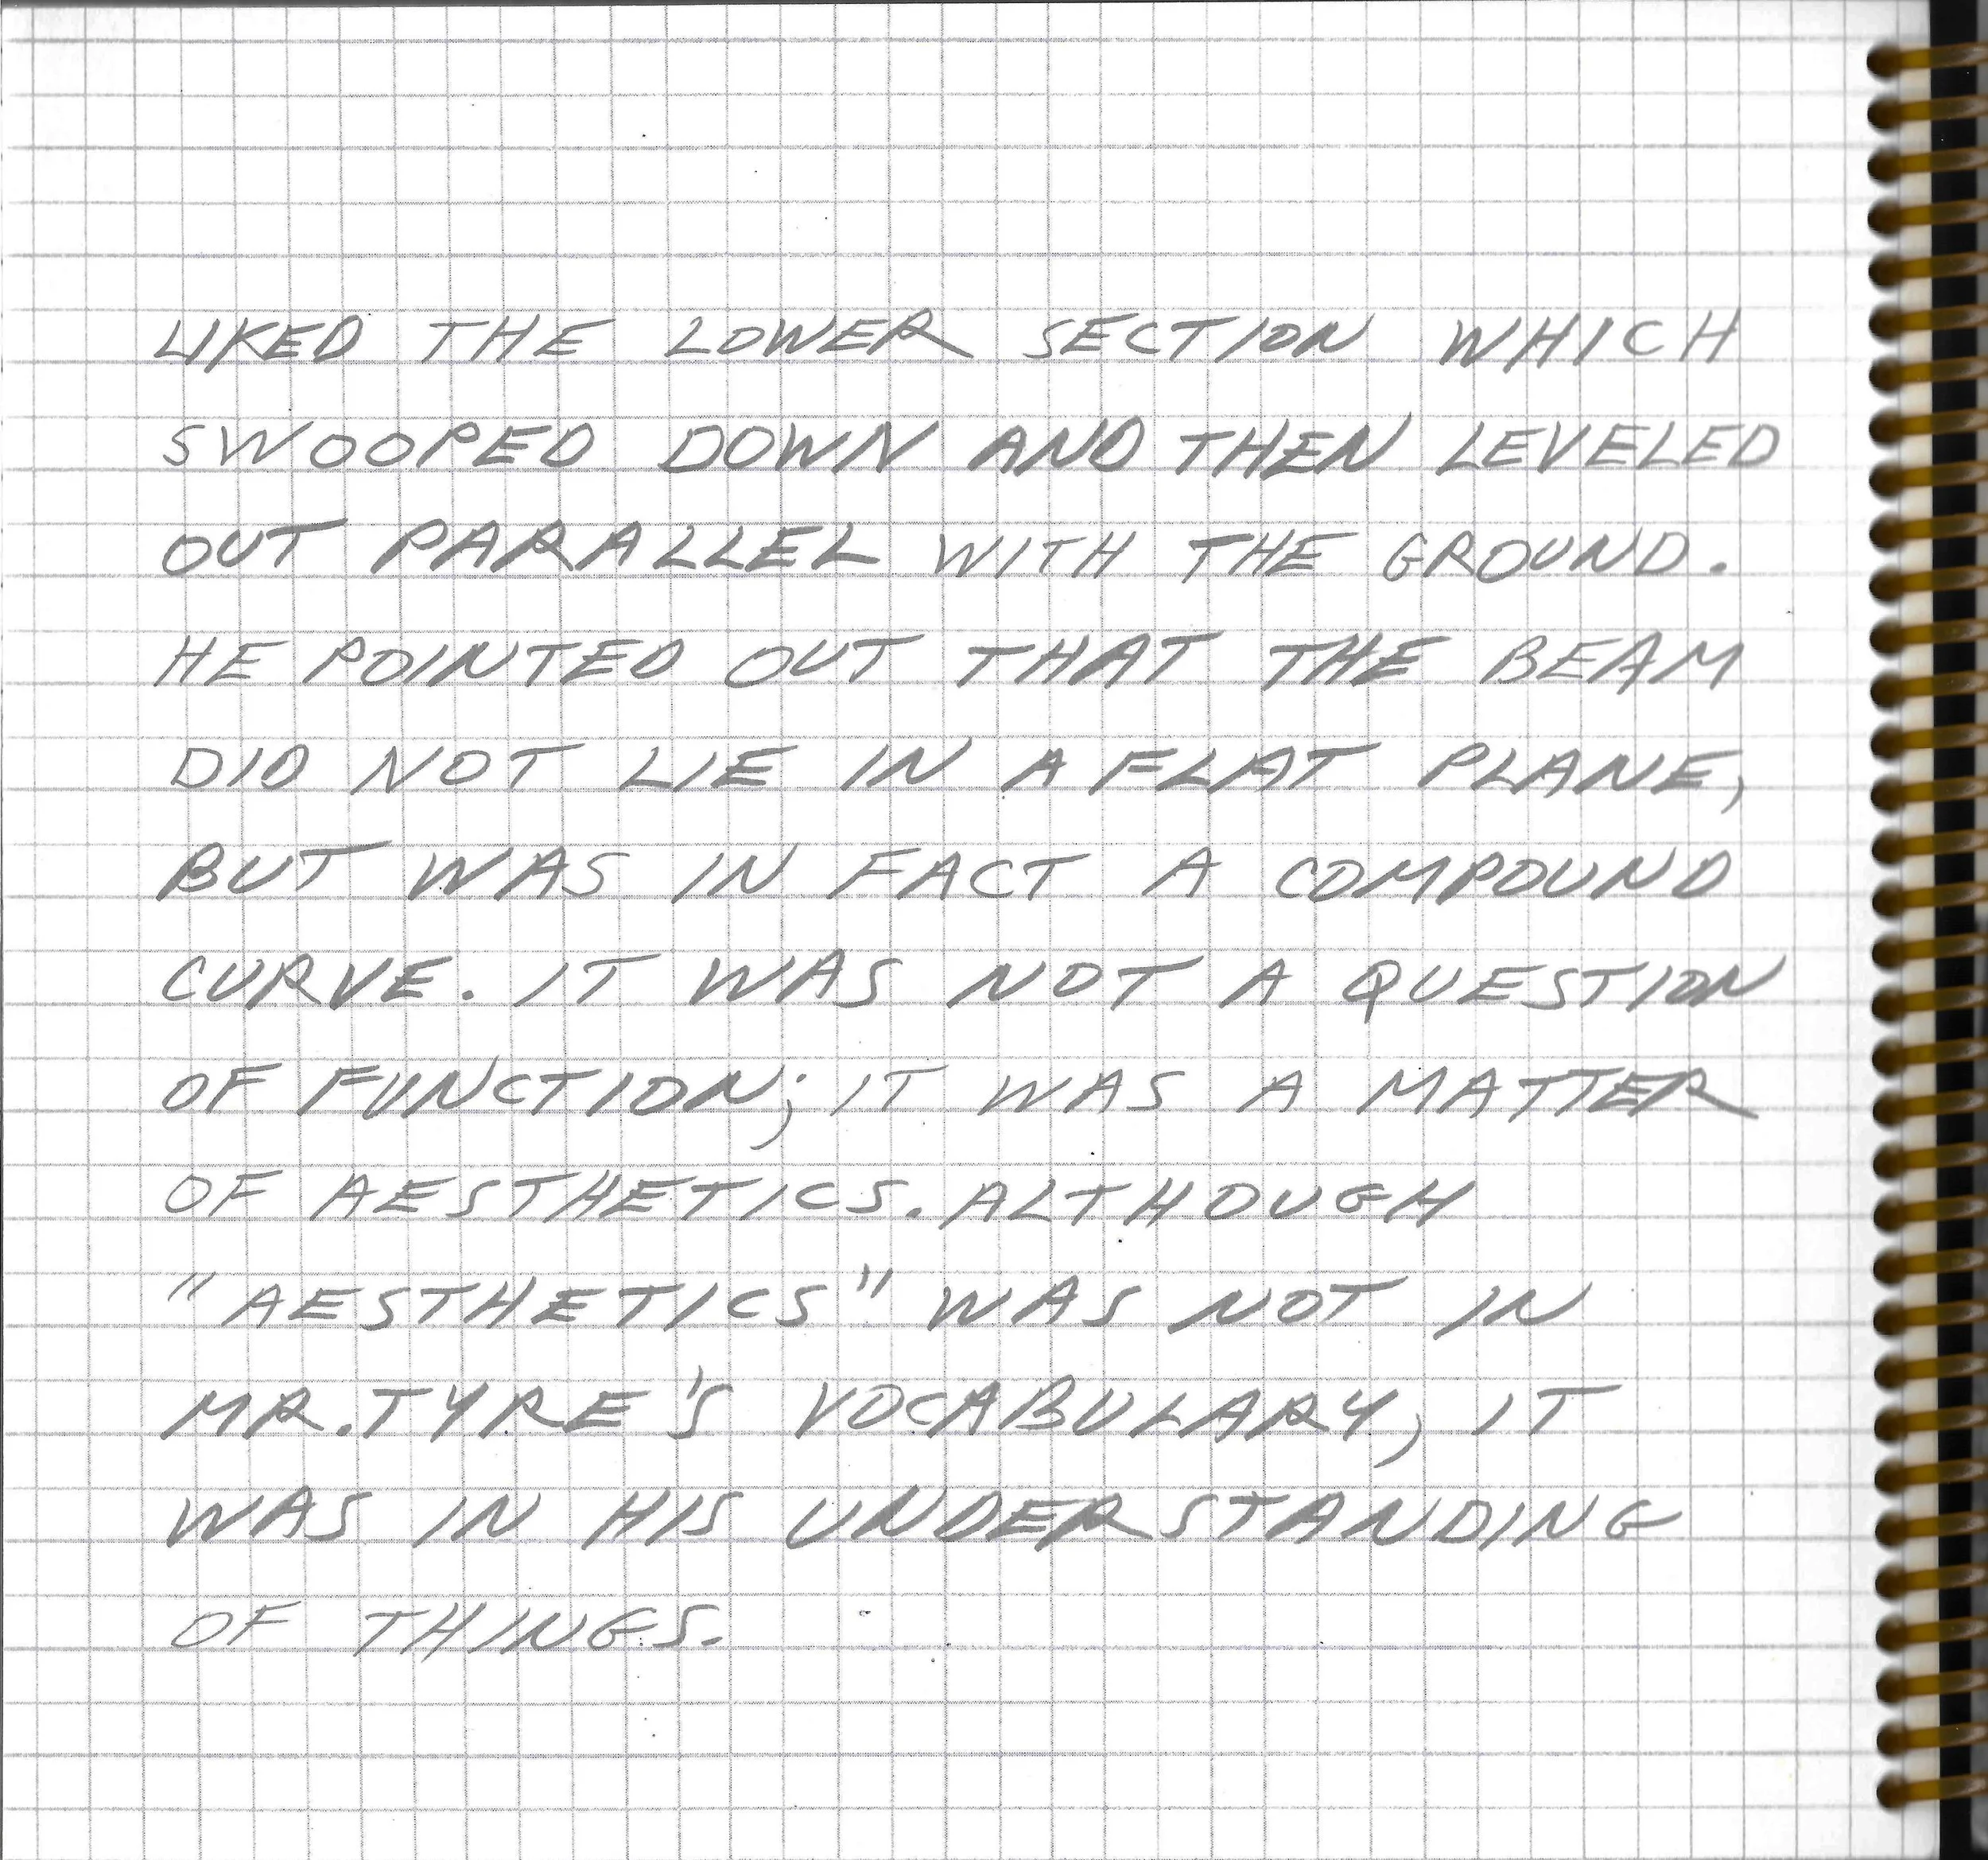 LIKED THE LOWER SECTION WHICH
SWOOPED DOWN AND THEN LEVELED
OUT PARALLEL WITH THE GROUND.
HE POINTED OUT THAT THE BEAM
DID NOT LIE IN A FLAT PLANE,
BUT WAS IN FACT A COMPOUND
CURVE. IT WAS NOT A QUESTION
OF FUNCTION; IT WAS A MATTER
OF AESTHETICS. ALTHOUGH
"AESTHETICS" WAS NOT IN
MR. TYRE'S VOCABULARY, IT
WAS IN HIS UNDERSTANDING
OF THINGS.